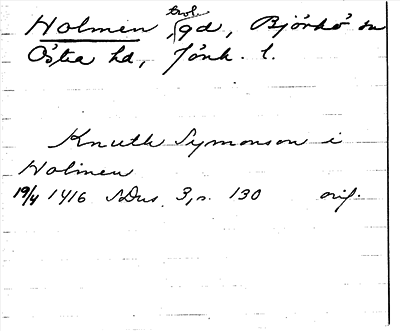 Holmen, trol. gd, Björkö sn
Östra hd, Jönk. l.
Knuth Symonson i
Holmen
19/4 1416 SDns. 3, s. 130 orig.